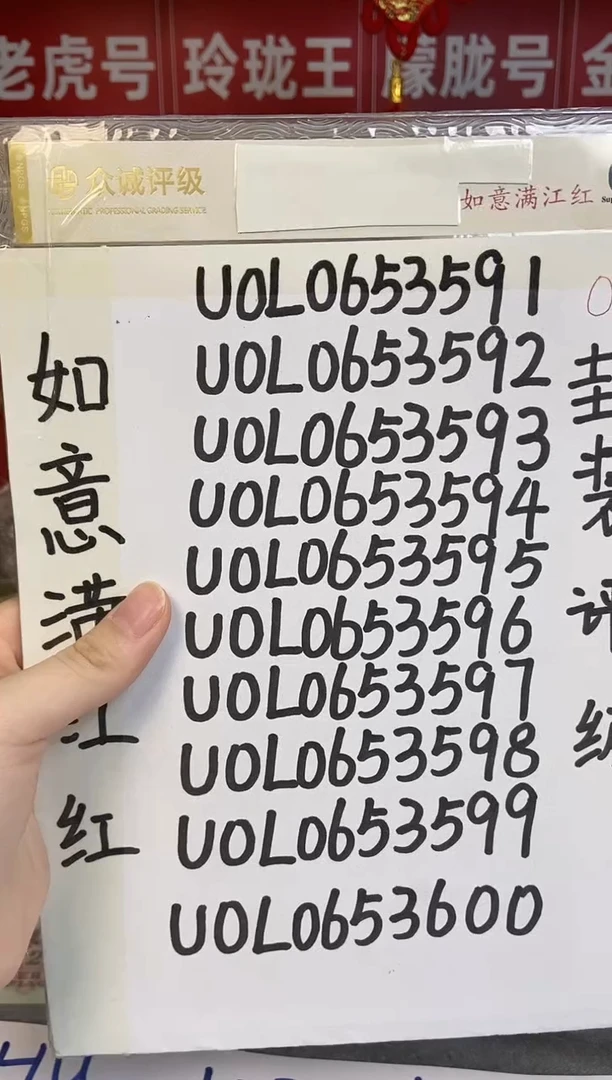 老虎号 玲珑王 朦胧号 金
众诚评级
PROFESSIONAL GRADING SERVICE
如意满江红
UOL0653591
UOL0653592
UOL0653593
UOL0653594
UOL0653595
UOL0653596
UOL0653597
UOL0653598
UOL0653599
UOL0653600
如意满江红
封装评级